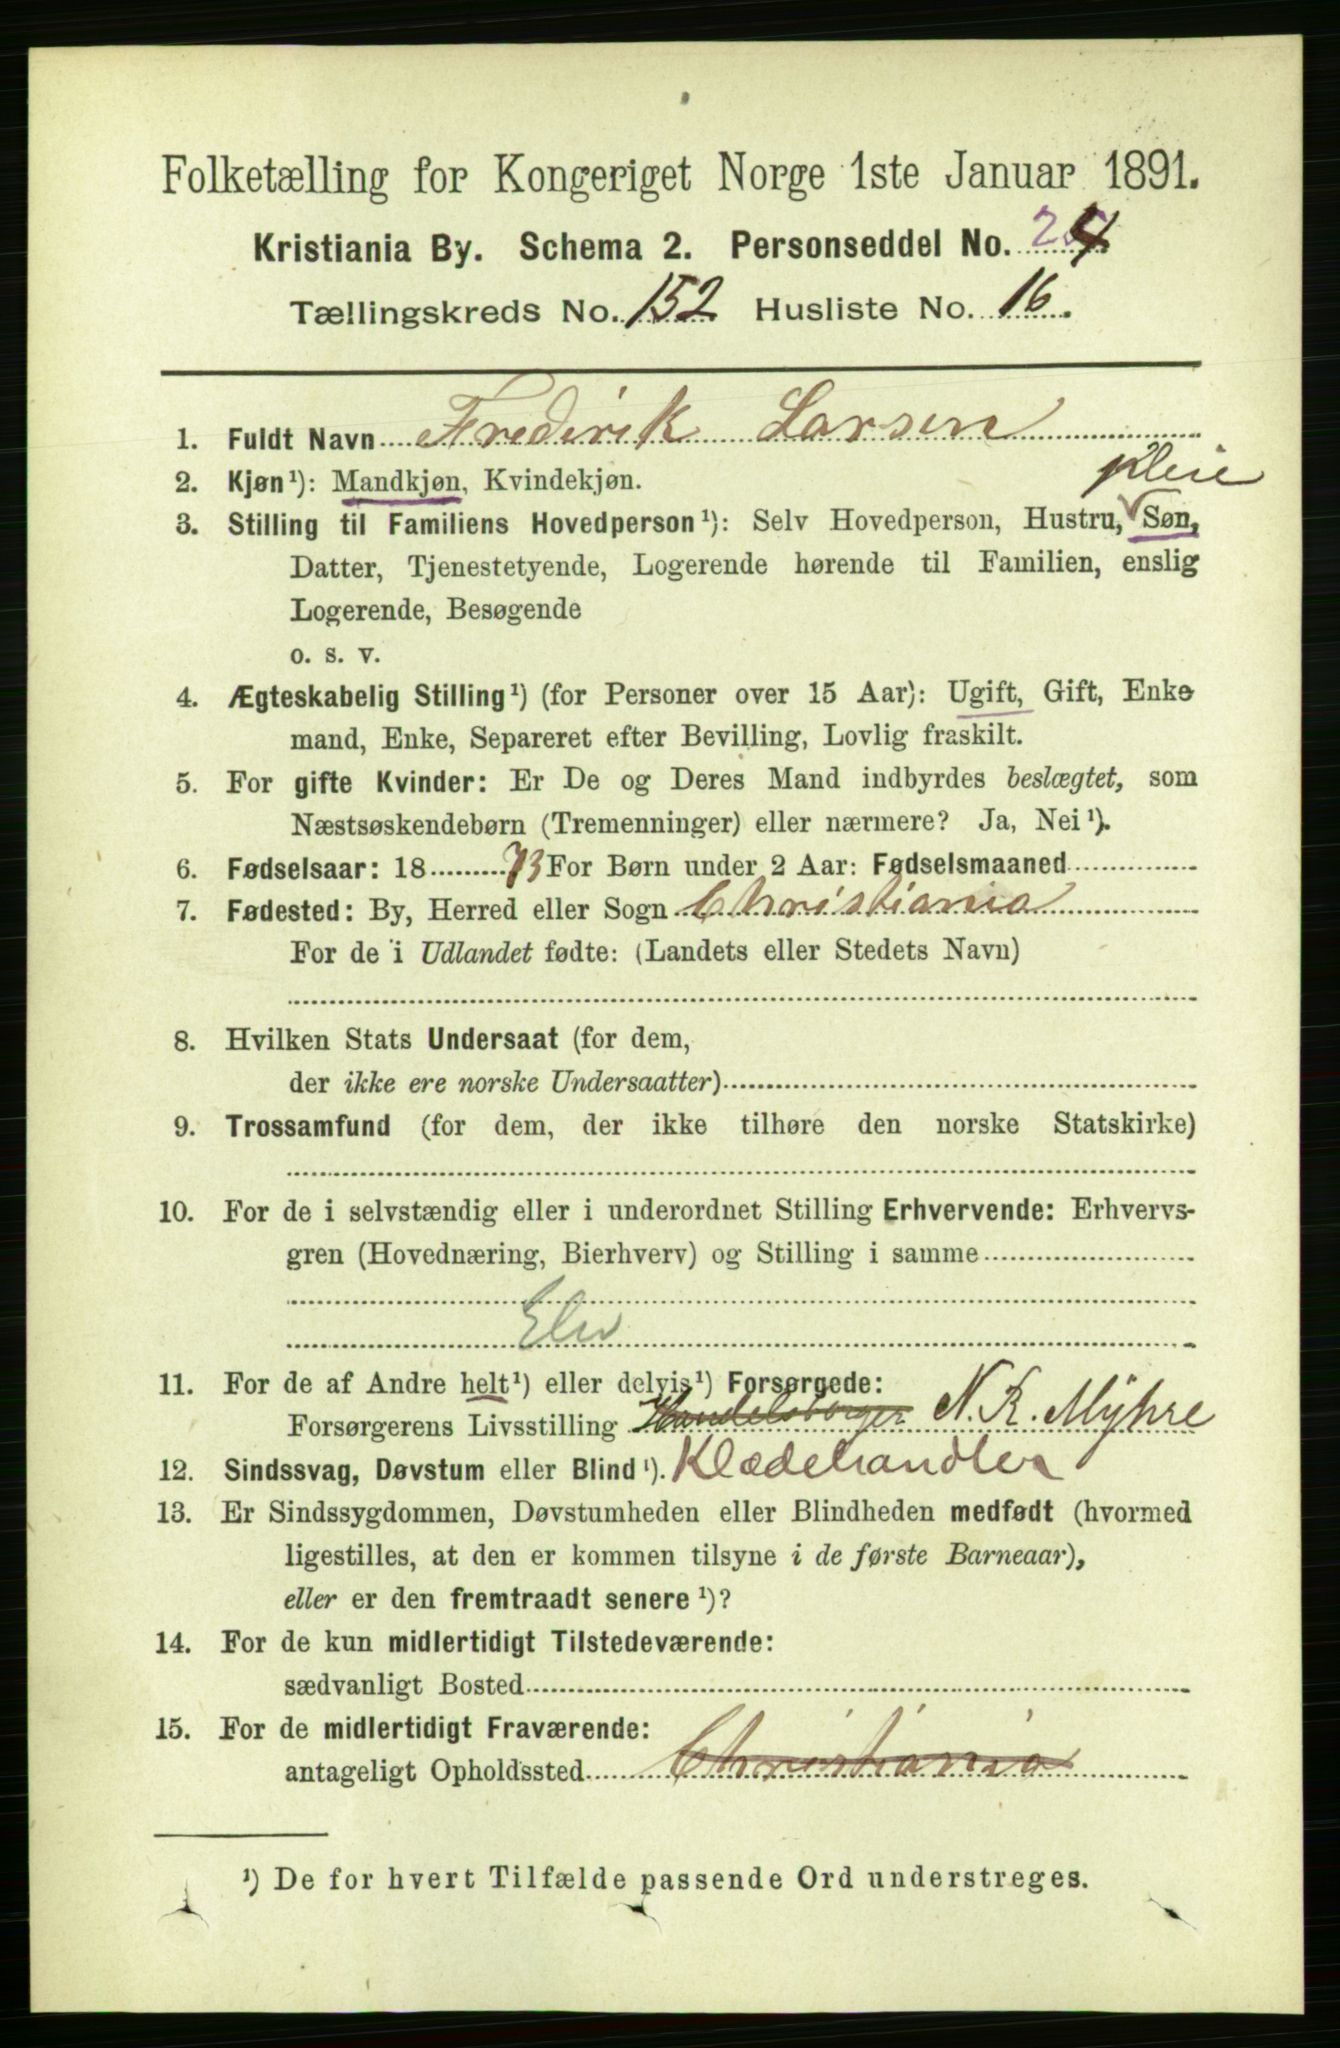 Folketælling for Kongeriget Norge 1ste Januar 1891.
Kristiania By. Schema 2. Personseddel No. 4
Tællingskreds No. 152 Husliste No. 16.
1. Fuldt Navn Frederik Larsen
2. Kjøn¹): Mandkjøn, Kvindekjøn. pleie
3. Stilling til Familiens Hovedperson¹): Selv Hovedperson, Hustru, Søn,
Datter, Tjenestetyende, Logerende hørende til Familien, enslig
Logerende, Besøgende
o. s. v.
4. Ægteskabelig Stilling¹) (for Personer over 15 Aar): Ugift, Gift, Enke
mand, Enke, Separeret efter Bevilling, Lovlig fraskilt.
5. For gifte Kvinder: Er De og Deres Mand indbyrdes beslægtet, som
Næstsøskendebørn (Tremenninger) eller nærmere? Ja, Nei¹).
6. Fødselsaar: 1873 For Børn under 2 Aar: Fødselsmaaned
7. Fødested: By, Herred eller Sogn Christiania
For de i Udlandet fødte: (Landets eller Stedets Navn)
8. Hvilken Stats Undersaat (for dem,
der ikke ere norske Undersaatter)
9. Trossamfund (for dem, der ikke tilhøre den norske Statskirke)
10. For de i selvstændig eller i underordnet Stilling Erhvervende: Erhvervs-
gren (Hovednæring, Bierhverv) og Stilling i samme
Elev
11. For de af Andre helt¹) eller delvis¹) Forsørgede:
Forsørgerens Livsstilling Handelsborger N. R. Myhre
12. Sindssvag, Døvstum eller Blind¹). Klædehandler
13. Er Sindssygdommen, Døvstumheden eller Blindheden medfødt (hvormed
ligestilles, at den er kommen tilsyne i de første Barneaar),
eller er den fremtraadt senere¹)?
14. For de kun midlertidigt Tilstedeværende:
sædvanligt Bosted
15. For de midlertidigt Fraværende:
antageligt Opholdssted Christiania
¹) De for hvert Tilfælde passende Ord understreges.